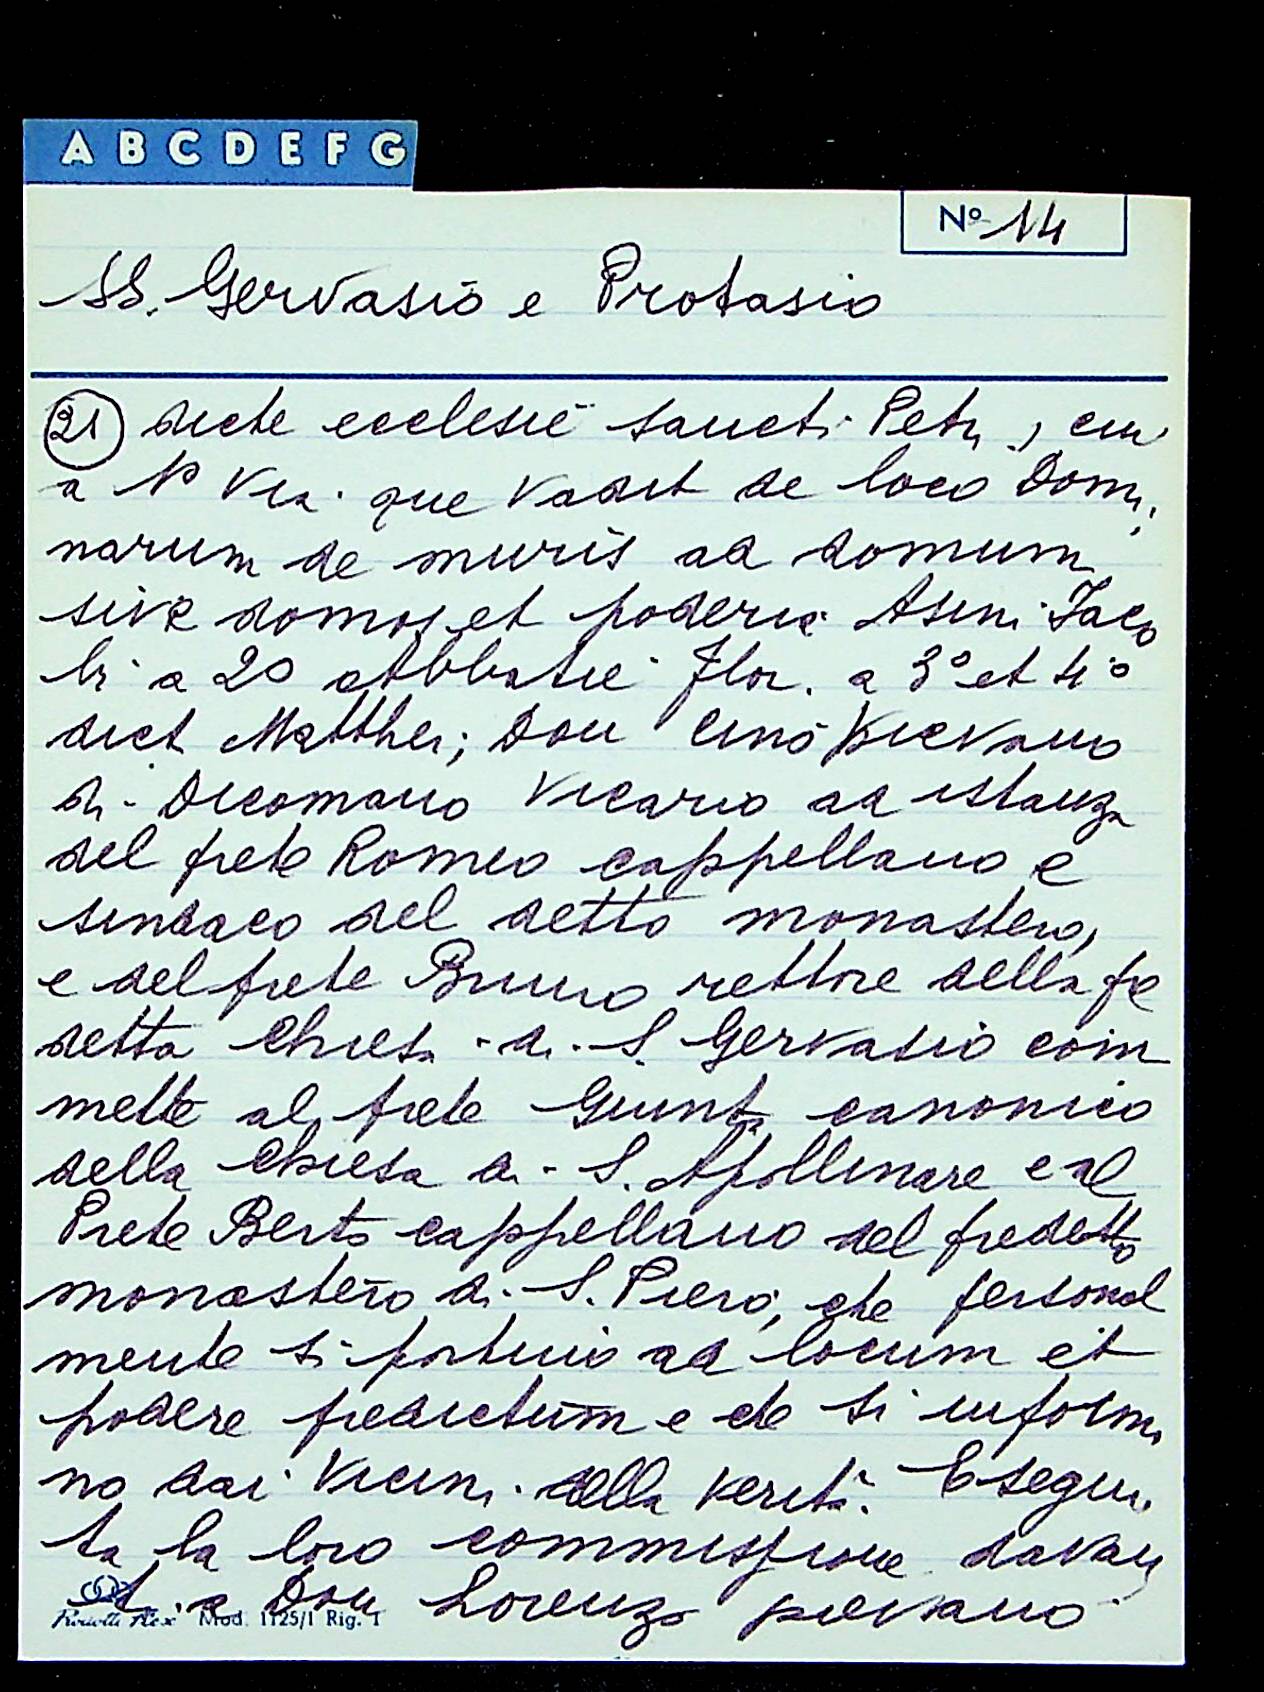 A B C D E F G
Nº 14
SS. Gervasio e Protasio
21 dicte ecclesie sancti Petri, cui
a 1º via que vadit de loco Domi,
narum de muris ad domum
sive domos et poderia Asini Iaco
bi a 2º Abbatie Flor. a 3º et 4º
dict Matthei; Don Cino pievano
di Dicomano Vicario ad istanza
del prete Romeo cappellano e
sindaco del detto monastero,
e del prete Bruno rettore della pre
detta Chiesa di S. Gervasio com
mette al prete Giunta canonico
della Chiesa di S. Apollinare e al
Prete Berto cappellano del predetto
monastero di S. Piero, che personal
mente si portino ad locum et
podere predictum e che si informi
no dai vicini della verità. Esegui,
ta la loro commissione davan
ti a Don Lorenzo pievano
Mod. 1125/1 Rig. 1